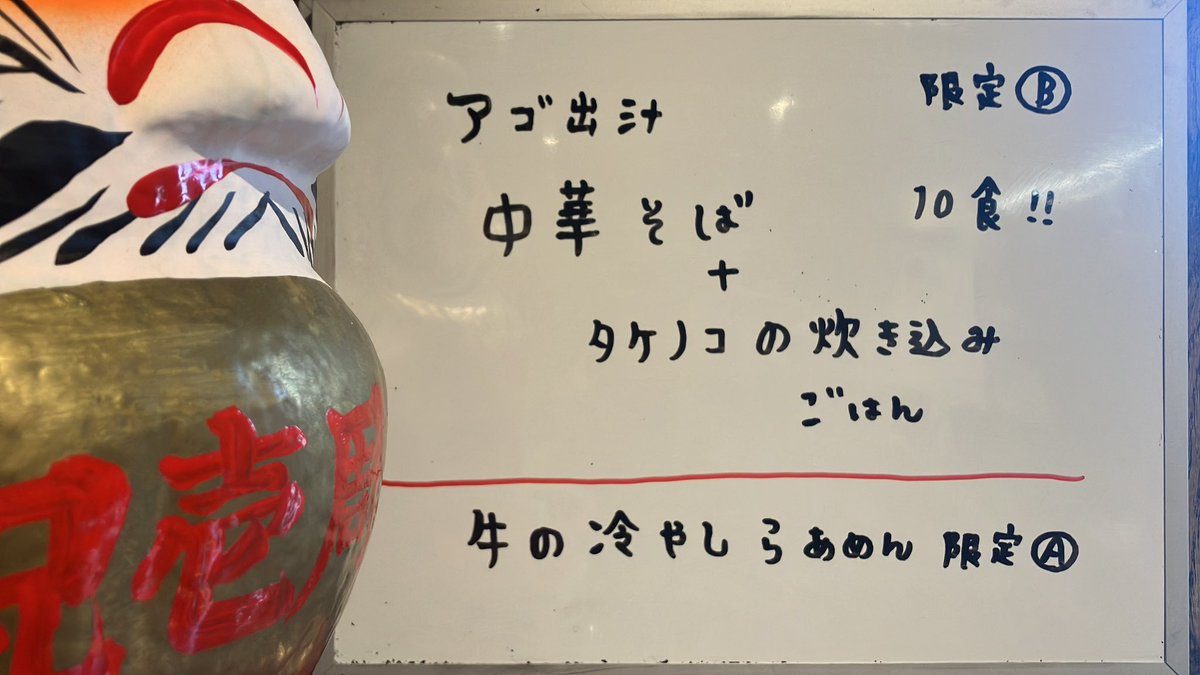 アゴ出汁 限定Ⓑ
中華そば 10食!!
+
タケノコの炊き込み
ごはん
牛の冷やしらあめん 限定Ⓐ
壱